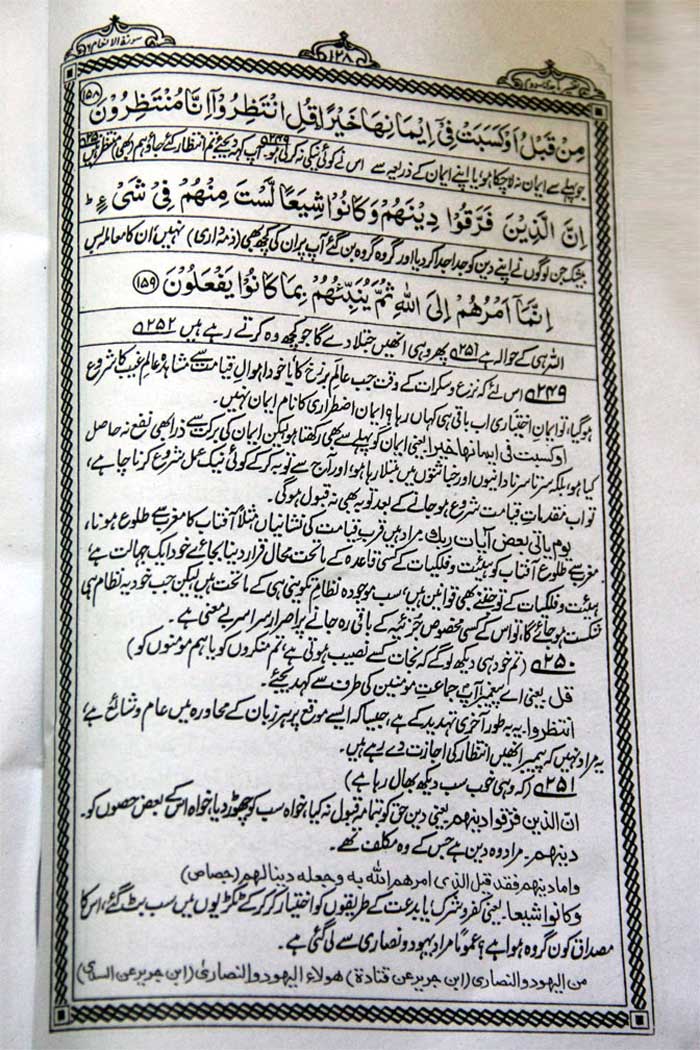 سورۃ الانعام ۶
۱۲۸
مِنْ قَبْلُ اَوْ كَسَبَتْ فِيْٓ اِيْمَانِهَا خَيْرًا ؕ قُلِ انْتَظِرُوْٓا اِنَّا مُنْتَظِرُوْنَ ۱۵۸
جو پہلے سے ایمان نہ لا چکا ہو، یا اپنے ایمان کے ذریعہ سے اس نے کوئی نیکی نہ کر لی ہو ۲۴۹ آپ کہہ دیجئے تم انتظار کئے جاؤ ہم (بھی) منتظر ہیں ۲۵۰
اِنَّ الَّذِيْنَ فَرَّقُوْا دِيْنَهُمْ وَكَانُوْا شِيَعًا لَّسْتَ مِنْهُمْ فِيْ شَيْءٍ ؕ
بیشک جن لوگوں نے اپنے دین کو جدا جدا کر دیا اور گروہ گروہ بن گئے آپ پر ان کی کچھ بھی (ذمہ داری) نہیں، ان کا معاملہ بس
اِنَّمَآ اَمْرُهُمْ اِلَى اللّٰهِ ثُمَّ يُنَبِّئُهُمْ بِمَا كَانُوْا يَفْعَلُوْنَ ۱۵۹
اللہ ہی کے حوالہ ہے ۲۵۱ پھر وہی انھیں جتلا دے گا جو کچھ وہ کرتے رہے ہیں ۲۵۲
۲۴۹ اس لئے کہ نزع و سکرات کے وقت جب عالم برزخ کا یا خود احوالِ قیامت سے مشاہدہ عالمِ غیب کا شروع
ہو گیا، تو ایمانِ اختیاری اب باقی ہی کہاں رہا؟ ایمان اضطراری کا نام ایمان نہیں۔
او کسبت فی ایمانها خیرا یعنی ایمان گو پہلے سے بھی رکھتا ہو لیکن ایمان کی برکت سے ذرا بھی نفع نہ حاصل
کیا ہو، بلکہ سرتاسر نادانیوں اور خباثتوں میں مبتلا رہا ہو، اور آج سے توبہ کر کے کوئی نیک عمل شروع کرنا چاہے،
تو اب مقدماتِ قیامت شروع ہو جانے کے بعد توبہ بھی نہ قبول ہوگی۔
یوم یاتی بعض آیات ربک مراد ہیں قربِ قیامت کی نشانیاں مثلاً آفتاب کا مغرب سے طلوع ہونا،
مغرب سے طلوع آفتاب کو ہیئت و فلکیات کے کسی قاعدہ کے ماتحت محال قرار دینا بجائے خود ایک جہالت ہے،
ہیئت و فلکیات کے تو جتنے بھی قوانین ہیں، سب موجودہ نظامِ تکوینی ہی کے ماتحت ہیں لیکن جب خود یہ نظام ہی
شکست ہو جائے گا، تو اس کے کسی مخصوص جزئیہ کے باقی رہ جانے پر اصرار سراسر بے معنی ہے۔
۲۵۰ (تم خود ہی دیکھ لو گے کہ نجات کسے نصیب ہوتی ہے، تم منکروں کو یا ہم مومنوں کو)
قل یعنی اے پیمبر آپ جماعت مومنین کی طرف سے کہہ دیجئے۔
انتظروا۔ یہ بہ طور آخری تہدید کے ہے، جیسا کہ ایسے موقع پر ہر زبان کے محاورہ میں عام و شائع ہے،
یہ مراد نہیں کہ پیمبر انھیں انتظار کی اجازت دے رہے ہیں۔
۲۵۱ (کہ وہی خوب سب دیکھ بھال رہا ہے)
انّ الذین فرقوا دینهم یعنی دین حق کو بتمامہ قبول نہ کیا، خواہ سب کو چھوڑ دیا، خواہ اس کے بعض حصوں کو۔
دینهم۔ مراد وہ دین ہے جس کے وہ مکلف تھے۔
واما دینهم فقد قیل الذی امرهم الله به وجعله دینا لهم (جصاص)
وکانوا شیعا۔ یعنی کفر و شرک، یا بدعت کے طریقوں کو اختیار کر کر کے ٹکڑیوں میں سب بٹ گئے، اس کا
مصداق کون گروہ ہوا ہے؟ عموماً مراد یہود و نصاریٰ سے لی گئی ہے۔
من الیهود والنصاری (ابن جریر عن قتادة) هولاء الیهود والنصاری (ابن جریر عن السدی)